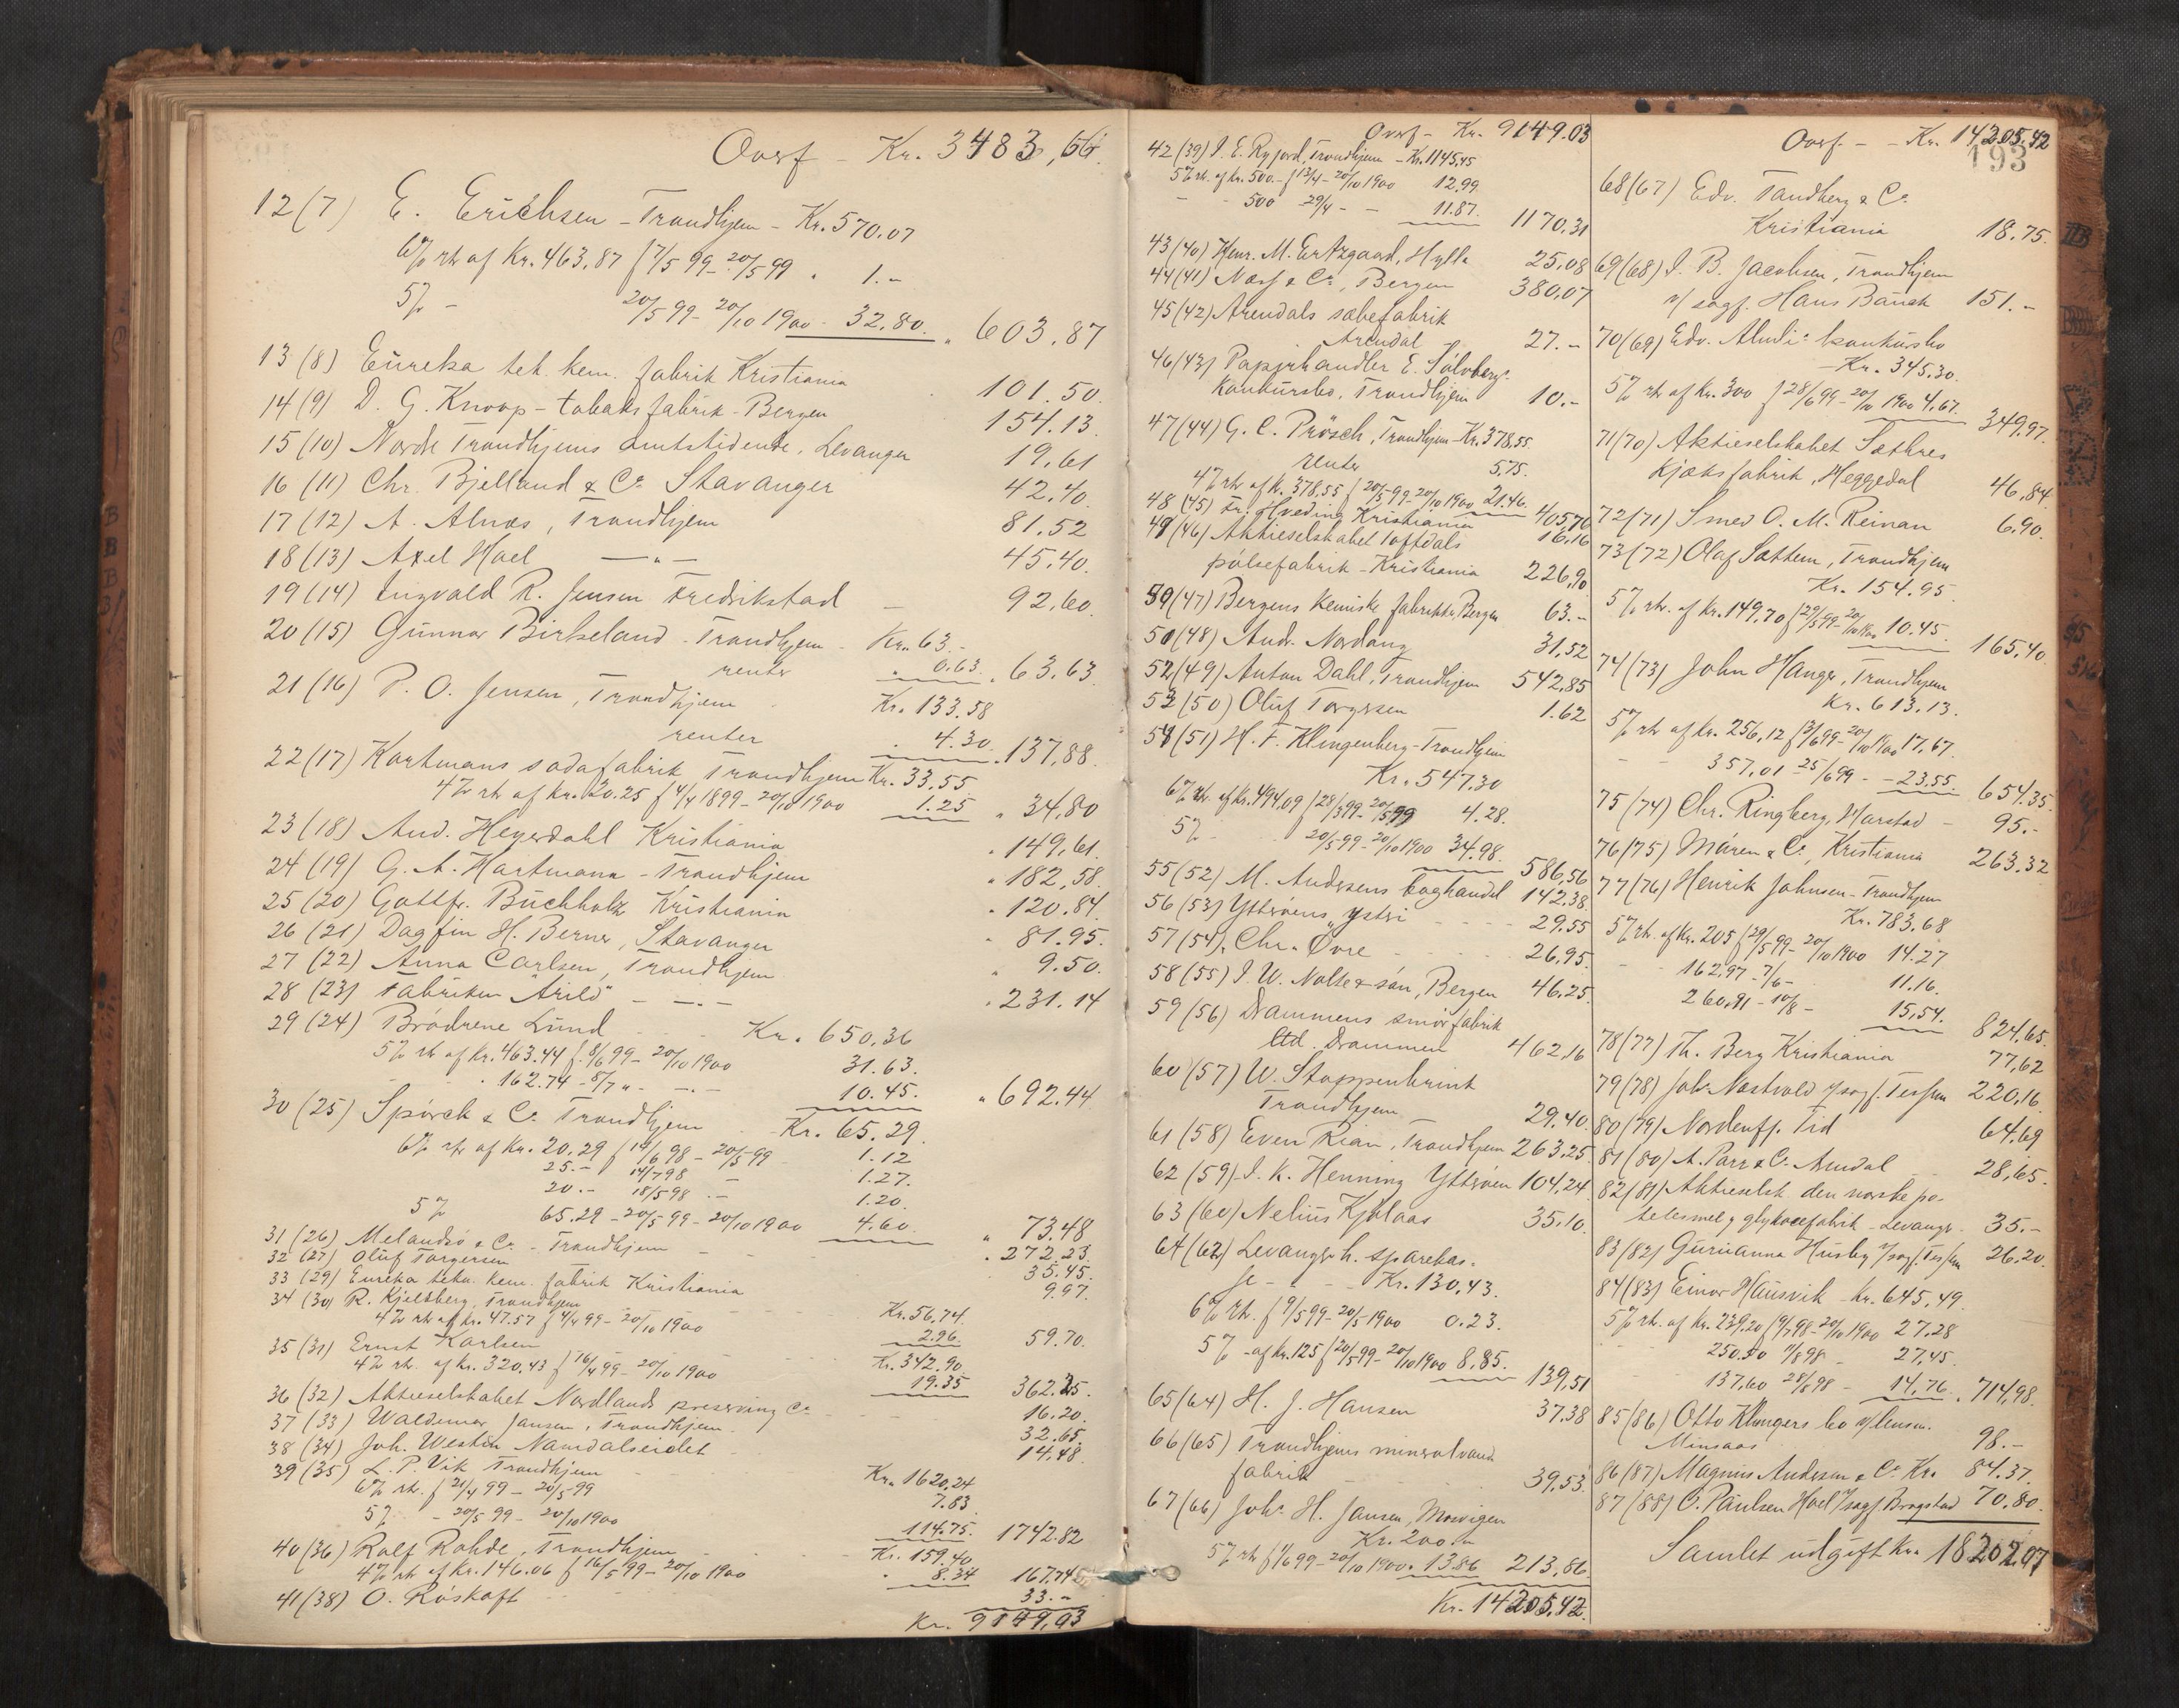 Overf - Kr. 3483,66.
12 (7) E. Erichsen - Trondhjem - Kr. 570.07
6% rtr af Kr. 463,87 f 7/5 99 - 20/5 99 . 1.-
5% - 20/5 99 - 20/10 1900 - 32,80. " 603,87
13 (8) Eureka tek. kem. fabrik Kristiania 101.50.
14 (9) D. G. Knoop - tobaksfabrik - Bergen 154.13.
15 (10) Nordre Trondhjems amtstidende, Levanger 19,61
16 (11) Chr. Bjelland & Co Stavanger 42,40.
17 (12) A. Alnæs, Trondhjem 81.52
18 (13) Axel Hoel — " — 45.40.
19 (14) Ingvald R. Jensen Fredrikstad — 92,60.
20 (15) Gunnar Birkeland - Trondhjem - Kr. 63.-
renter " 0.63. " 63,63.
21 (16) P. O. Jensen, Trondhjem Kr. 133.58
renter . 4.30. " 137,88.
22 (17) Kortmans sodafabrik Trondhjem Kr. 33,55.
4% rtr af Kr. 20.25 f 4/4 1899 - 20/10 1900 1.25 " 34,80
23 (18) And. Heyerdahl Kristiania " 149,61.
24 (19) G. A. Hartmann - Trondhjem " 182,58.
25 (20) Gottfr. Buchholtz Kristiania " 120.84.
26 (21) Dagfin H. Berner, Stavanger " 81.95.
27 (22) Anna Carlsen, Trondhjem " 9.50.
28 (23) Fabriken "Arild" - —.— " 231.14
29 (24) Brødrene Lund Kr. 650,36
5% rtr af Kr. 463.44 f. 8/6 99 - 20/10 1900 31.63.
" 162.74 - 5/7 " - —.— 10.45. " 692.44
30 (25) Spørck & Co Trondhjem - Kr. 65.29.
6% rtr af Kr. 20.29 f 14/6 98 - 20/5 99 1.12
25.- f 14/7 98 — 1.27.
20.- 18/5 98 .— 1.20.
5% 65.29 - 20/5 99 - 20/10 1900 4.60. " 73.48
31 (26) Melandsø & Co - Trondhjem - " 272.23.
32 (27) Oluf Torgersen 35.45.
33 (29) Eureka tekn. kem. fabrik Kristiania 9.97.
34 (30) R. Kjeldsberg, Trondhjem Kr. 56,74.
4% rtr af Kr. 47.57 f 4/4 99 - 20/10 1900 2.96. 59.70.
35 (31) Ernst Karlsen Kr. 342.90
4% rtr. af kr. 320,43 f 16/4 99 - 20/10 1900 19.35 362.25.
36 (32) Aktieselskabet Nordlands preserving Co - 16,20.
37 (33) Waldemar Jansen, Trondhjem. 32.65.
38 (34) Joh. Westin Namdalseidet - 14,48.
39 (35) L. P. Vik Trondhjem Kr. 1620,24
6% rtr. f 21/4 99 - 20/5 99 7.83
5% - 20/5 99 - 20/10 1900 114.75. 1742.82
40 (36) Rolf Rohde, Trondhjem Kr. 159.40
4% rtr af Kr. 146.06 f 16/5 99 - 20/10 1900 " 8.34 167,74
41 (38) O. Røskaft 33.-
Kr. 9149,03
Overf - Kr. 9149.03
42 (39) I. E. Ryjord, Trondhjem - Kr. 1145,45
5% rtr. af Kr. 500.- f 13/4 - 20/10 1900 12.99.
- - 500 29/4 - — 11.87. 1170.31
43 (40) Henr. M. Ertzgaard, Hylla 25,08
44 (41) Næss & Co, Bergen 380,07
45 (42) Arendals sæbefabrik
Arendal 27.-
46 (43) Papirhandler E. Sølvbergs
konkursbo, Trondhjem 10.-
47 (44) G. C. Prösch, Trondhjem - Kr. 378,55.
renter 5,75.
4% rtr af K. 378,55 f 20/5 99 - 20/10 1900 21.46. 405,76
48 (45) Fr. Hveding Kristiania 16,16
49 (46) Aktieselskabet Toftdals
pølsefabrik - Kristiania 226,90
50 (47) Bergens kemiske fabrikker Bergen 63.-
51 (48) Andr. Nordang 31,52
52 (49) Anton Dahl, Trondhjem 542,85
53 (50) Oluf Torgersen 1.62
54 (51) H. F. Klingenberg - Trondhjem
Kr. 547.30
6% rtr. af Kr. 494,09 f 28/3 99 - 20/5 99 4.28.
5% - 20/5 99 - 20/10 1900 34.98. 586,56
55 (52) M. Andersens boghandel 142,38.
56 (53) Ytterøens ysteri - - - 29.55
57 (54) Chr. Øvre - 26,95.
58 (55) I. W. Nolte & søn, Bergen 46,25.
59 (56) Drammens smørfabrik
ltd. Drammen 462,16
60 (57) W. Stoppenbrink
Trondhjem — 29,40.
61 (58) Even Rian, Trondhjem 263,25.
62 (59) I. K. Henning Ytterøen 104,24
63 (60) Nelius Kjølaas 35,10.
64 (62) Levanger h. sparekas-
se - - - Kr. 130,43.
6% rtr. f 9/5 99 - 20/5 1900 0.23.
5% - af kr. 125 f 20/5 99 - 20/10 1900 8,85. 139,51
65 (64) H. J. Hansen 37,38
66 (65) Trondhjems mineralvand
fabrik - 39,53.
67 (66) Johs. H. Jansen, Mosvigen
Kr. 200.-
5% rtr f 1/6 99 - 20/10 1900 " 13.86 213,86.
Kr. 14205,42.
Overf. - - Kr. 14,205,42
193
68 (67) Edv. Tandberg & Co
Kristiania 18.75.
69 (68) I. B. Jacobsen, Trondhjem
v/ sagf. Hans Bauck 151.-
70 (69) Edv. Alndis konkursbo
- Kr. 345.30.
5% rtr af kr. 300 f 28/6 99 - 20/10 1900 4,67. 349,97.
71 (70) Aktieselskabet Sætres
kjæksfabrik, Heggedal 46,84.
72 (71) Smed O. M. Reinan 6.90.
73 (72) Olaf Sættem, Trondhjem
Kr. 154.95.
5% rtr. af kr. 149,70 f 29/5 99 - 20/10 1900 10.45. 165,40.
74 (73) John Hanger, Trondhjem
Kr. 613.13.
5% rtr af kr. 256,12 f 3/6 99 - 20/10 1900 17,67.
- - 357,01 - 25/6 99 - - 23.55. 654.35.
75 (74) Chr. Ringberg, Harstad - 95.-
76 (75) Maren & Co, Kristiania 263.32
77 (76) Henrik Johnsen - Trondhjem
Kr. 783.68
5% rtr. af Kr. 205 f 29/5 99 - 20/10 1900 14.27
- - 162,97 - 7/6 - 11.16.
260,91 - 10/8 - 15,54. 824,65.
78 (77) Th. Berg Kristiania 77,62
79 (78) Johs Næstvold v/ sagf. Tessem 220,16.
80 (79) Nordenfj. Tid 64,69
81 (80) A. Parr & Co. Arendal - 28,65.
82 (81) Aktieselsk den norske po-
tetesmel & glykosefabrik - Levanger - 35.-
83 (82) Gurianna Husby v/ sagf. Tessem 26.20.
84 (83) Einar Hausvik - Kr. 645,49.
5% rtr. af Kr. 239,20 f 9/7 98 - 20/10 1900 27.28
- - 250.50 11/8 98 - 27,45.
137,60 28/8 98 - 14,76. . 714,98.
85 (86) Otto Klungers bo v/ lensm.
Minsaas 98.-
86 (87) Magnus Andersen & Co Kr. 84.37.
87 (88) O. Paulsen Hoel v/ sagf. Brogstad 70,80.
Samlet udgift Kr. 18202.97